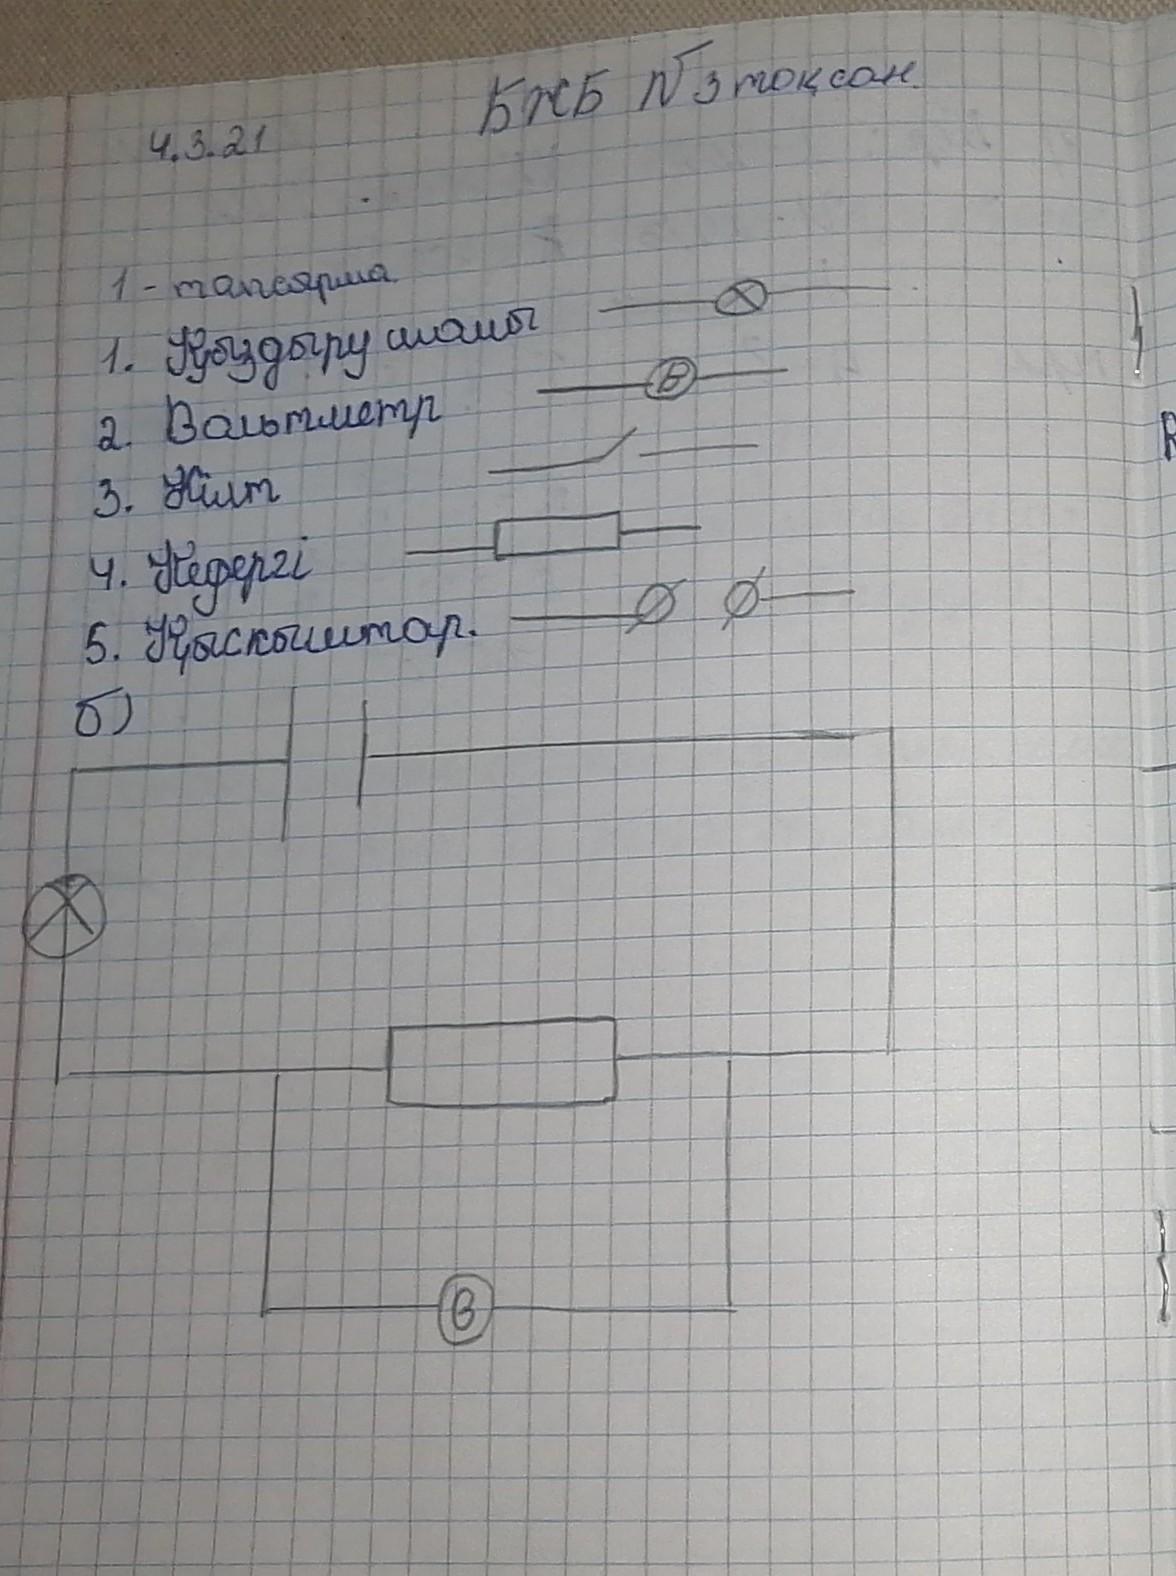 БЖБ №3 тоқсан.
4.3.21
1-тапсярма
1. Қыздыру шамы
2. Вольтметр
3. Кілт
4. Кедергі
5. Қысқыштар.
б)
В